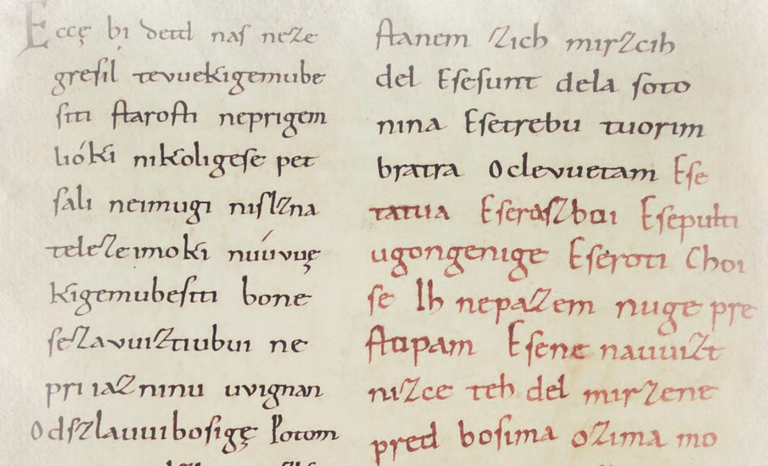 Eccę bi detd naſ neze
greſil tevuekigemube
ſiti ſtaroſti neprigem
lióki nikoligeſe pet
ſali neimugi niſlzna
teleze imoki núvvuę
kigemubeſiti bone
ſezavuiztiubui ne
priiazninu uvignan
Odſzlauuibosigę Potom
ſtanem zich mirzcih
del Eſeſunt dela ſoto
nina Eſetrebu tuorim
bratra Oclevuetam Eſe
tatua Eſeraſzboi Eſepulti
ugongenige Eſeroti Choi
ſe Ih nepazem nuge pre
ſtopam Eſene nauuizt
nizce teh del mirzene
pred boſima ozima mo